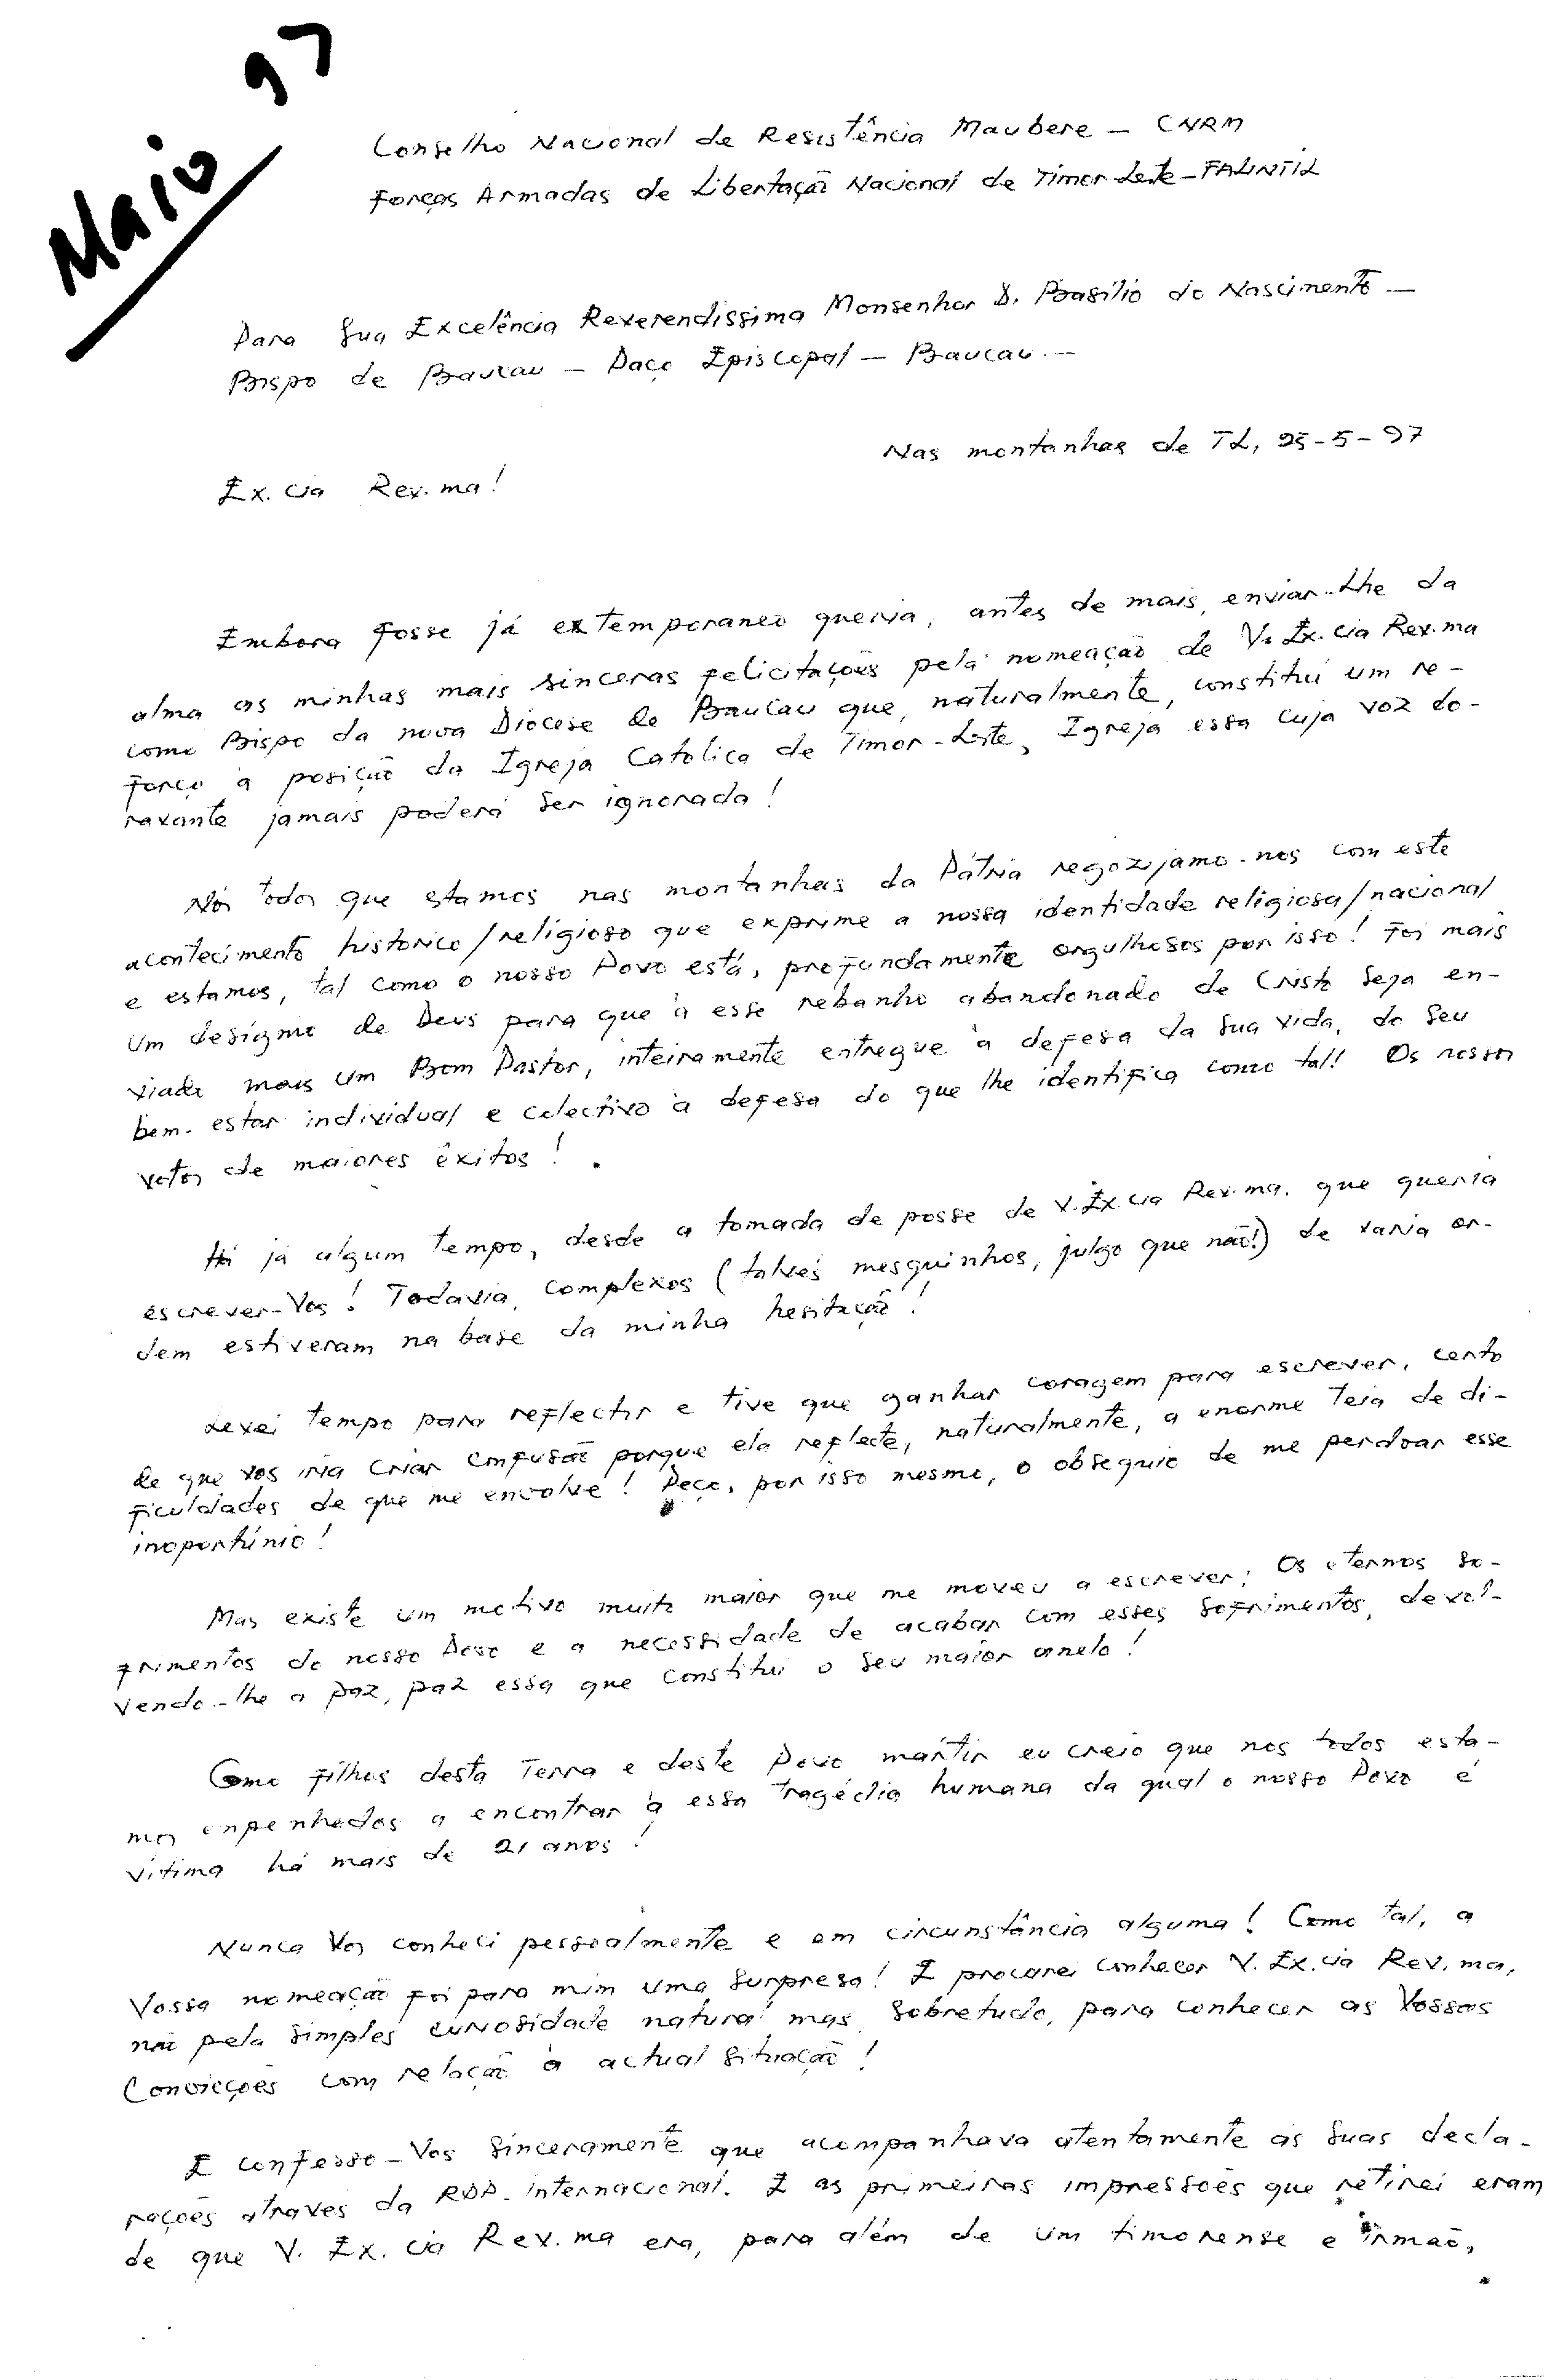 Maio 97
Conselho Nacional de Resistência Maubere — CNRM
Forças Armadas de Libertação Nacional de Timor-Leste - FALINTIL
Para Sua Excelência Reverendíssima Monsenhor D. Basílio do Nascimento —
Bispo de Baucau — Paço Episcopal — Baucau. —
Nas montanhas de TL, 25-5-97
Ex.cia Rev.ma!
Embora fosse já extemporaneo queria, antes de mais, enviar-Lhe da
alma as minhas mais sinceras felicitações pela nomeação de V. Ex.cia Rev.ma
como Bispo da nova Diocese de Baucau que, naturalmente, constitui um re-
forço à posição da Igreja Catolica de Timor-Leste, Igreja essa cuja voz do-
ravante jamais poderá ser ignorada!
Nós todos que estamos nas montanhas da Pátria regozijamo-nos com este
acontecimento histórico/religioso que exprime a nossa identidade religiosa/nacional
e estamos, tal como o nosso Povo está, profundamente orgulhosos por isso! Foi mais
um desígnio de Deus para que à esse rebanho abandonado de Cristo seja en-
viado mais um Bom Pastor, inteiramente entregue à defesa da sua vida, do seu
bem-estar individual e colectivo à defesa do que lhe identifica como tal! Os nossos
votos de maiores êxitos!
Há já algum tempo, desde a tomada de posse de V. Ex.cia Rev.ma. que queria
escrever-Vos! Todavia, complexos (talvés mesquinhos, julgo que não!) de varia or-
dem estiveram na base da minha hesitação!
Levei tempo para reflectir e tive que ganhar coragem para escrever, certo
de que vos iria criar confusão porque ela reflecte, naturalmente, a enorme teia de di-
ficuldades de que me envolve! Peço, por isso mesmo, o obsequio de me perdoar esse
inoportúnio!
Mas existe um motivo muito maior que me moveu a escrever; Os eternos so-
frimentos do nosso Povo e a necessidade de acabar com esses sofrimentos, devol-
vendo-lhe a paz, paz essa que constitui o seu maior anelo!
Como filhos desta Terra e deste Povo mártir eu creio que nós todos esta-
mos enpenhados a encontrar à essa tragédia humana da qual o nosso Povo é
vítima há mais de 21 anos!
Nunca Vos conheci pessoalmente e em circunstância alguma! Como tal, a
Vossa nomeação foi para mim uma surpresa! E procurei conhecer V. Ex.cia Rev.ma,
não pela simples curiosidade natural mas, sobretudo, para conhecer as Vossas
Convicções com relação à actual situação!
E confesso-Vos sinceramente que acompanhava atentamente as suas decla-
rações atraves da RDP-internacional. E as primeiras impressões que retirei eram
de que V. Ex.cia Rev.ma era, para além de um timorense e irmão,